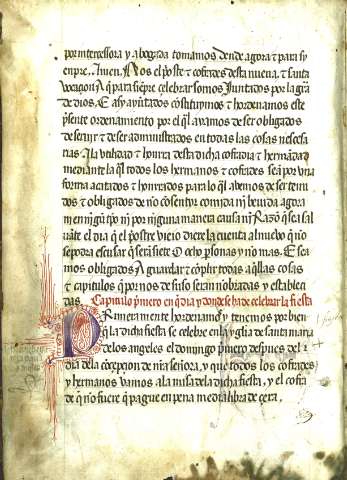 por intercessora y abogada tomamos dende agora t para sy
enpre. Amen. Nos el p'oste t cofrades desta nueua t santa
uocaçion A q̄ para sienpre celebrar somos Juntados por la grā
de dios. E asy ayuntados costituymos t hordenamos este
p̄sente ordenamiento por el q̄l ayamos de ser obligados
de seruir t de ser administrados en todas las cosas nesçesa
rias. A la vtilidad t honrra desta dicha cofradia t hermādad
mediante la q̄l todos los hermanos t cofrades seā por vna
forma acatados t honrrados para lo q̄l abemos de ser teni
dos t obligados de no cosentir comida nj beuida agora
en njngū tipo nj por njnguna manera causa nj Razō q̄ sea sal
uante el dia q̄ el p'ostre viejo diere la cuenta al nueuo q̄ no
se podra escusar q̄ serā siete O ocho p̄sonas y no mas. E sea
mos obligados A guardar t cōplir todas aq̄llas cosas
t capitulos q̄ por nos de suso serā nōbradas y estableçi
das. Capitulo p'mero en q̄ dia y donde se ha de celebrar la fiesta
Primera mente hordenamos y tenemos por bien
q̄ la dicha fiesta se celebre en la yglīa de santa maria
de los angeles el domingo p'mero despues del
dia de la cōçepçion de n̄ra señora, y que todos los cofrades
y hermanos vamos a la misa de la dicha fiesta, y el cofra
de q̄ no fuere q̄ pague en pena media libra de çera.